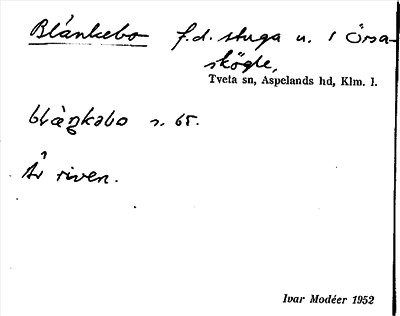 Blánkebo f.d. stuga u. 1 Örsa-
skögle,
Tveta sn, Aspelands hd, Klm. l.
blàŋkəbo s. 65.
Är riven.
Ivar Modéer 1952